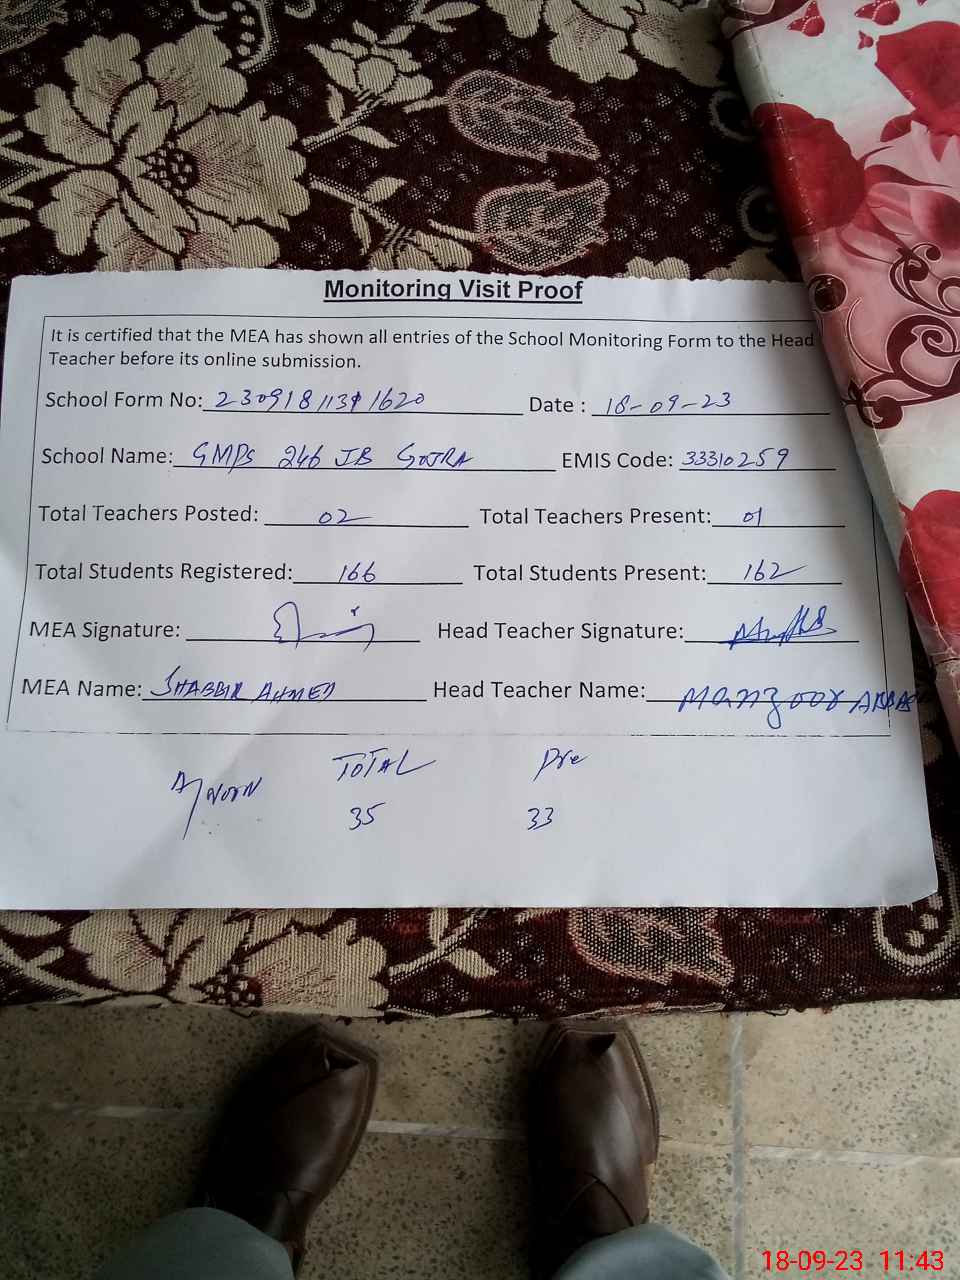 Monitoring Visit Proof
It is certified that the MEA has shown all entries of the School Monitoring Form to the Head
Teacher before its online submission.
School Form No: 23091811391620 Date : 18-09-23
School Name: GMPS 246 JB GOJRA EMIS Code: 33310259
Total Teachers Posted: 02 Total Teachers Present: 01
Total Students Registered: 166 Total Students Present: 162
MEA Signature: Head Teacher Signature:
MEA Name: SHABBIR AHMED Head Teacher Name: Manzoor ABBAS
A/NOON TOTAL Pre
35 33
18-09-23 11:43